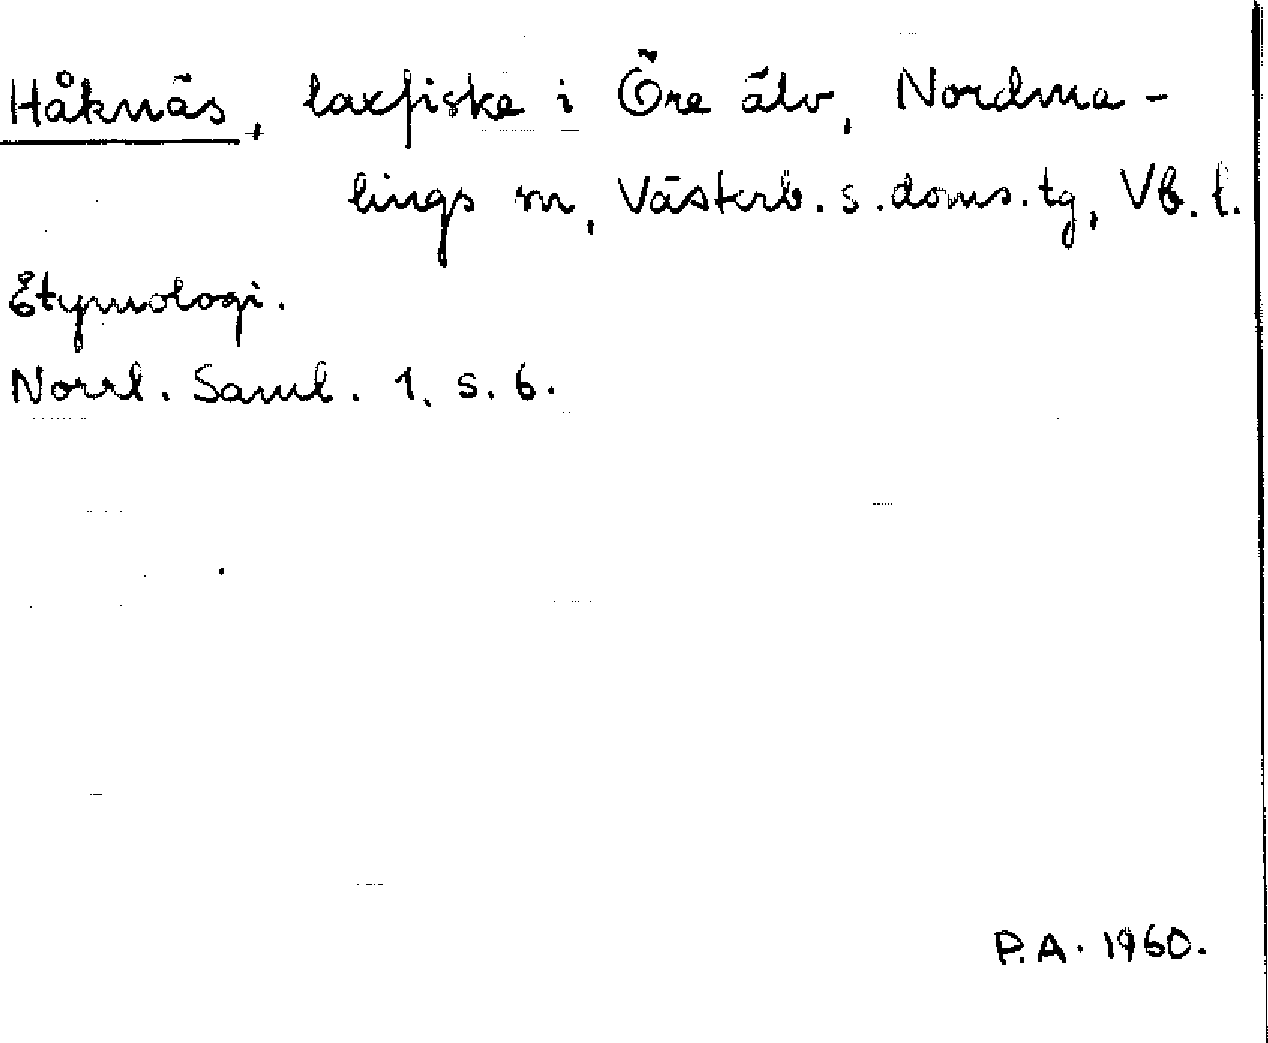 Håknäs, laxfiske i Öre älv, Nordma-
lings sn, Västerb. s. doms. tg, Vb. l.
Etymologi.
Norrl. Saml. 1. s. 6.
P.A. 1960.